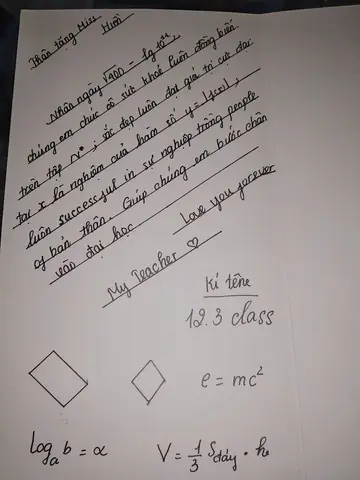 Thân tặng Miss Hiền
Nhân ngày √400 - lg10¹¹,
chúng em chúc cô sức khoẻ luôn đồng biến
trên tập N*; sắc đẹp luôn đạt giá trị cực đại
tại x là nghiệm của hàm số y = |f(x)|,
luôn successful in sự nghiệp trồng people
of bản thân. Giúp chúng em bước chân
vào đại học
Love you forever
My Teacher ♡
Kí tên
12.3 class
e = mc²
logₐb = α
V = 1/3 S đáy . h